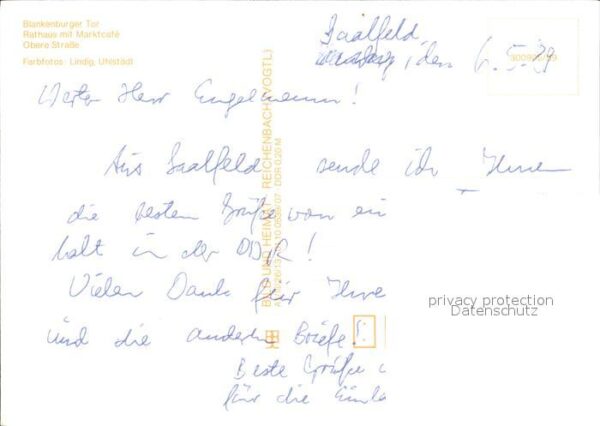 Blankenburger Tor
Rathaus mit Marktcafé
Obere Straße
Farbfotos: Lindig, Uhlstädt
Saalfeld,
den 6.5.89
Werter Herr Engelmann!
Aus Saalfeld sende ich Ihnen
die besten Grüße von ein
halt in der DDR!
Vielen Dank für Ihre
und die anderen Briefe.
Beste Grüße
für die Einla
BILD UND HEIMAT REICHENBACH (VOGTL)
DDR 0,20 M
privacy protection
Datenschutz